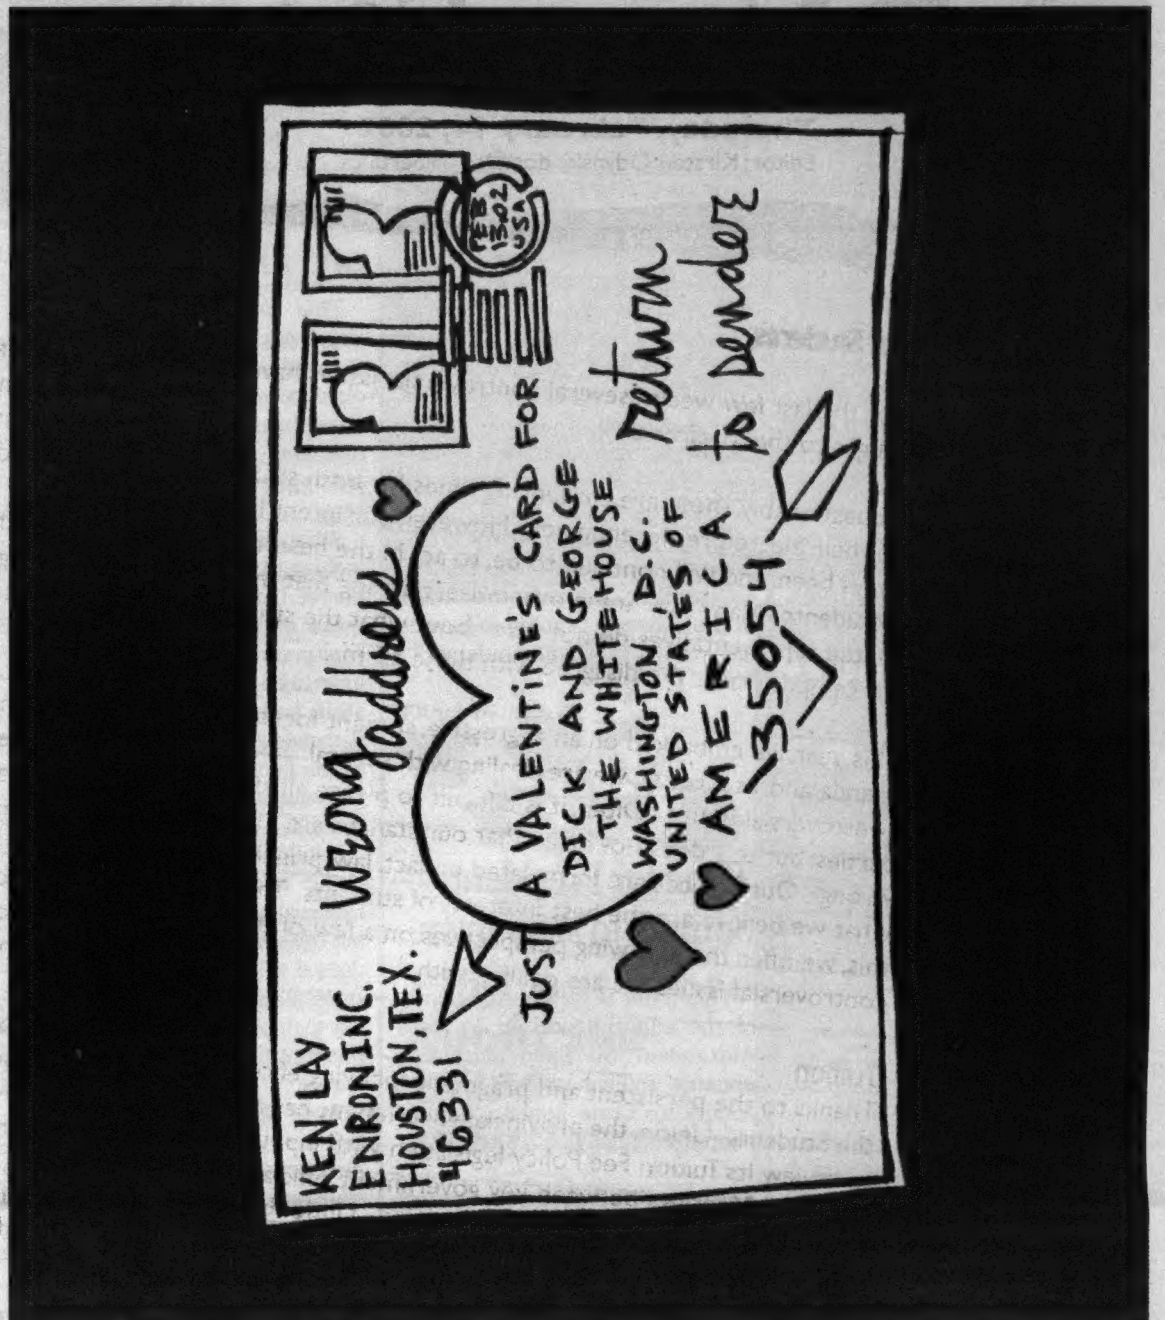 KEN LAY
ENRON INC.
HOUSTON, TEX.
46331
FEB
13,02
USA
Wrong
address
JUST A VALENTINE'S CARD FOR
DICK AND GEORGE
THE WHITE HOUSE
WASHINGTON D.C.
UNITED STATES OF
AMERICA
35054
return
to sender